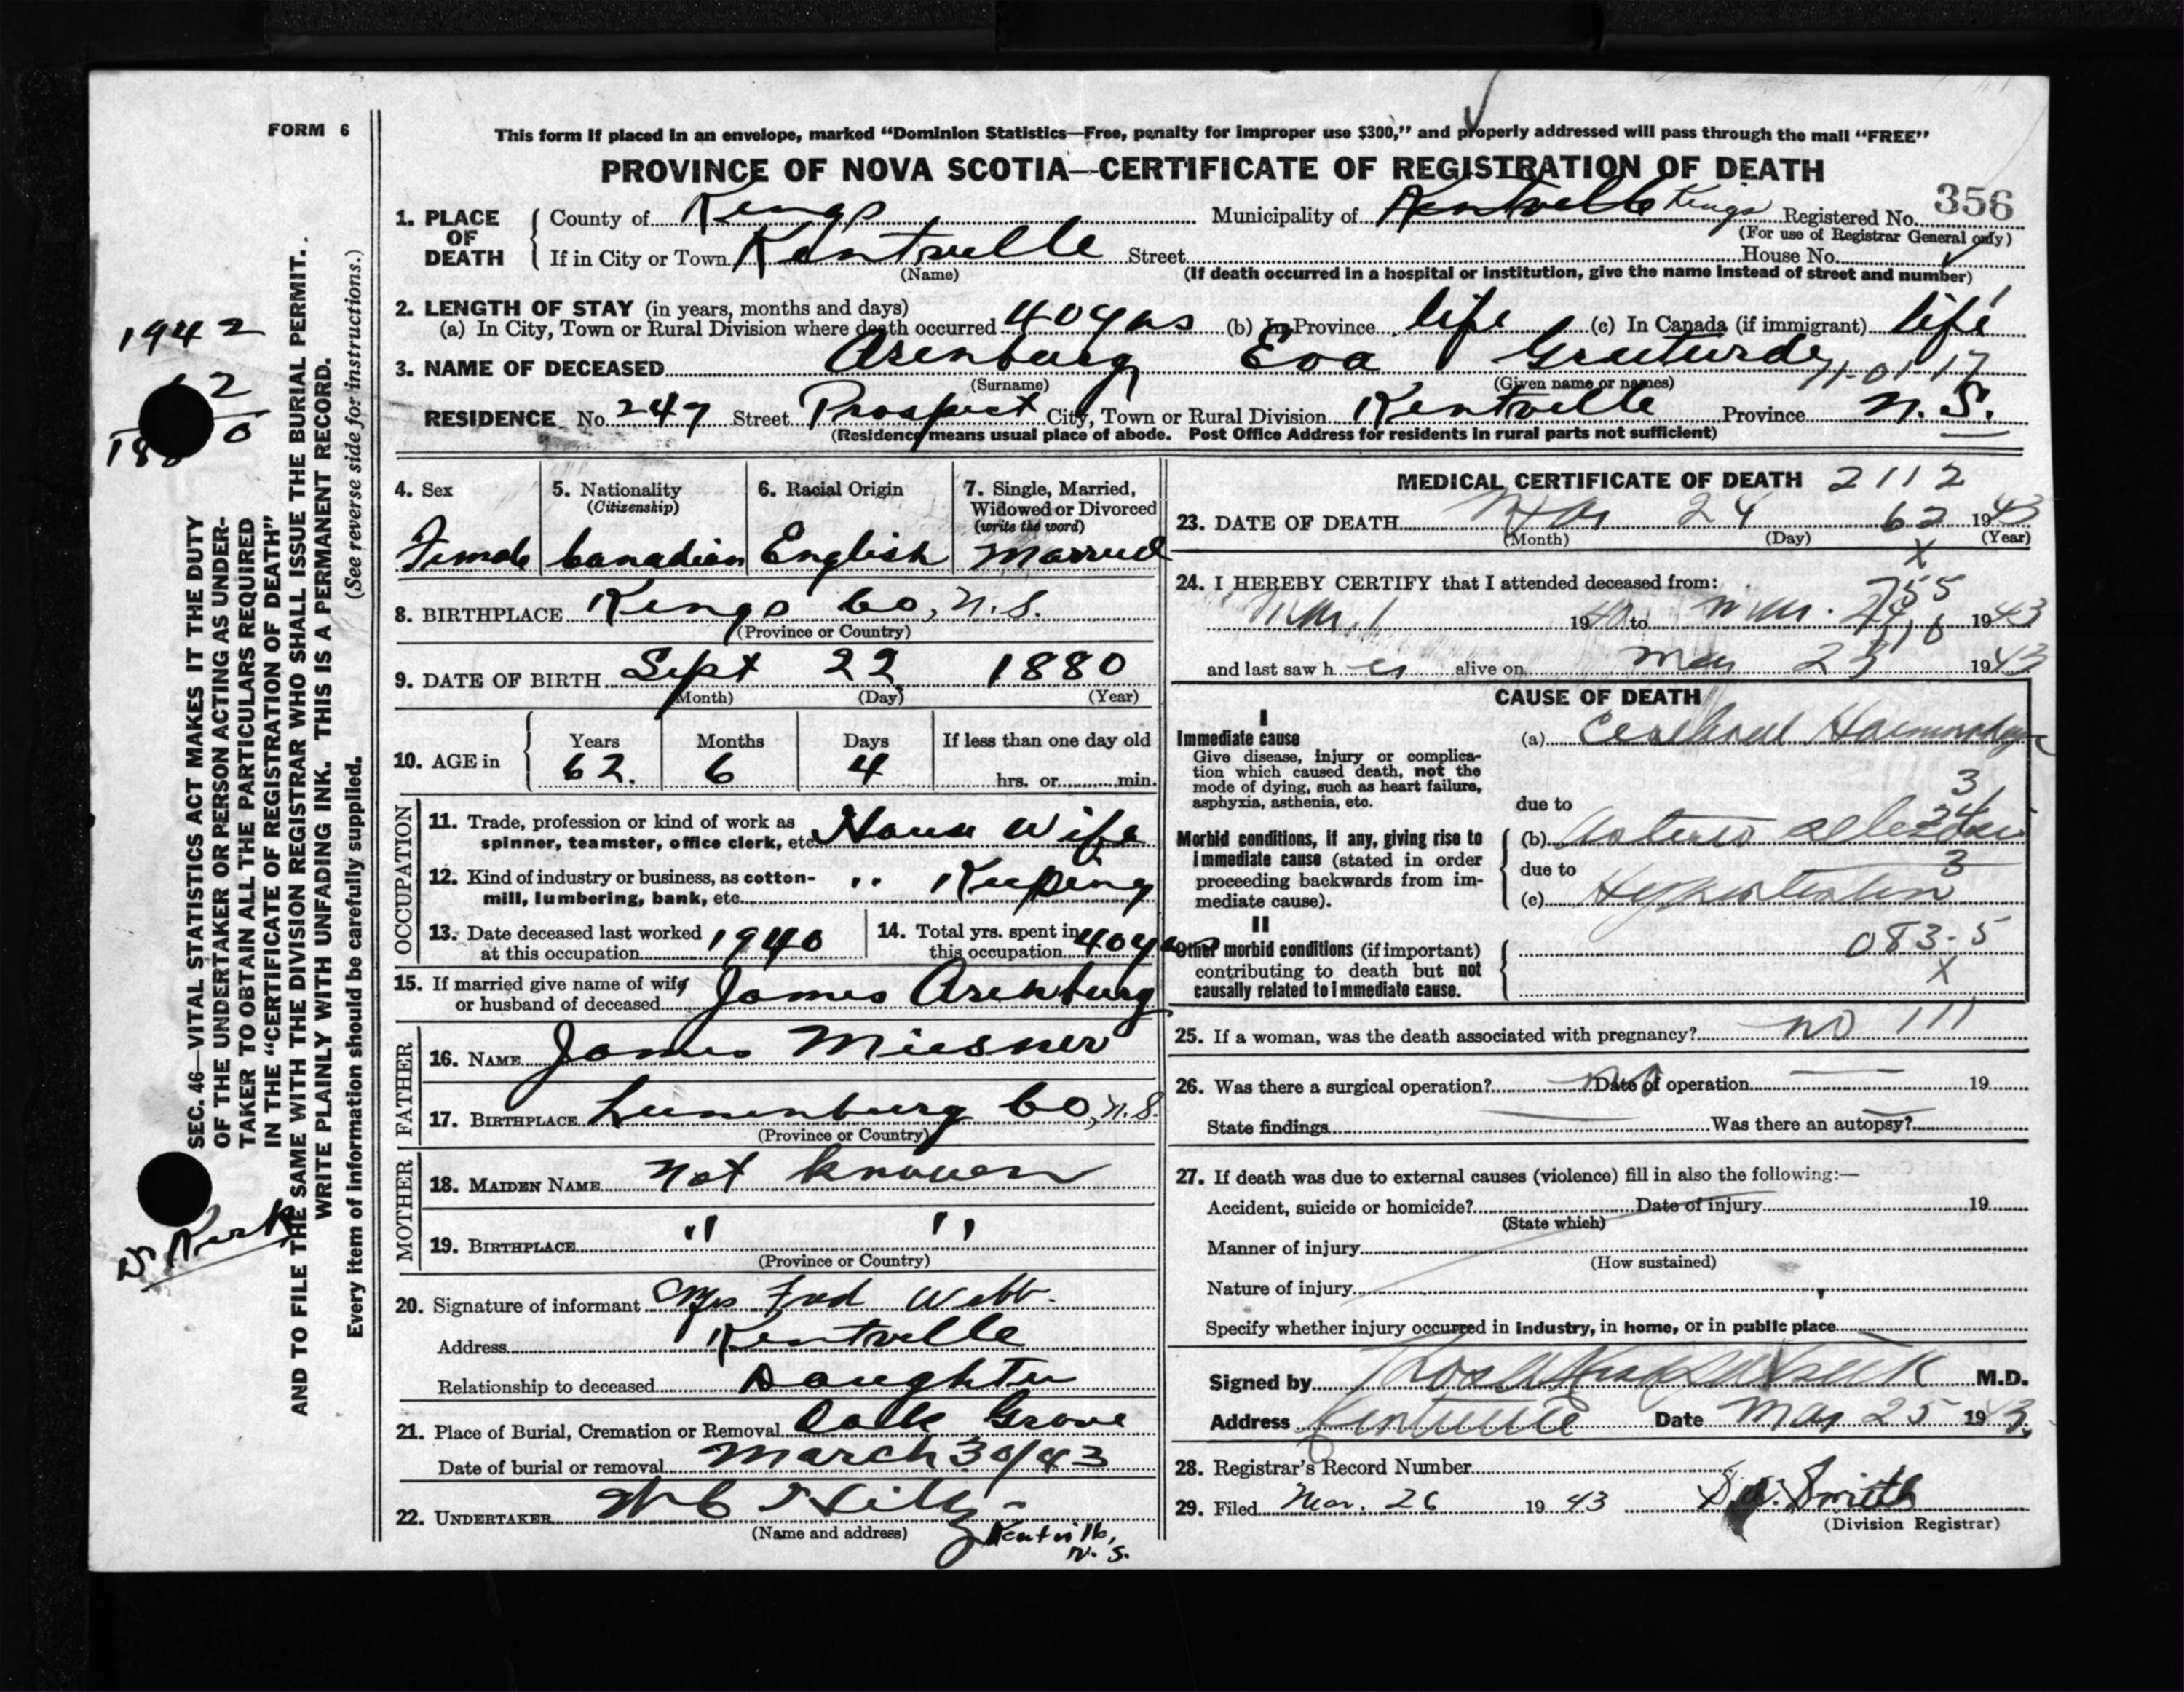 FORM 6
This form if placed in an envelope, marked “Dominion Statistics—Free, penalty for improper use $300,” and properly addressed will pass through the mail “FREE”
PROVINCE OF NOVA SCOTIA—CERTIFICATE OF REGISTRATION OF DEATH
356
1. PLACE OF DEATH { County of Kings Municipality of Kentville Kings Registered No.
(For use of Registrar General only)
If in City or Town Kentville Street House No.
(Name) (If death occurred in a hospital or institution, give the name instead of street and number)
2. LENGTH OF STAY (in years, months and days)
(a) In City, Town or Rural Division where death occurred 40 yrs (b) In Province life (c) In Canada (if immigrant) life
3. NAME OF DECEASED Arenburg Eva Gruturde
(Surname) (Given name or names) 11-01-17
RESIDENCE No. 247 Street Prospect City, Town or Rural Division Kentville Province N.S.
(Residence means usual place of abode. Post Office Address for residents in rural parts not sufficient)
4. Sex Female
5. Nationality (Citizenship) Canadian
6. Racial Origin English
7. Single, Married, Widowed or Divorced (write the word) Married
8. BIRTHPLACE Kings Co, N.S.
(Province or Country)
9. DATE OF BIRTH Sept 22 1880
(Month) (Day) (Year)
10. AGE in { Years 62. Months 6 Days 4 If less than one day old
hrs. or min.
OCCUPATION
11. Trade, profession or kind of work as House Wife
spinner, teamster, office clerk, etc.
12. Kind of industry or business, as cotton- " Keeping
mill, lumbering, bank, etc.
13. Date deceased last worked at this occupation 1940
14. Total yrs. spent in this occupation 40 yrs
15. If married give name of wife
or husband of deceased James Arenburg
FATHER
16. NAME James Miesner
17. BIRTHPLACE Lunenburg Co, N.S.
(Province or Country)
MOTHER
18. MAIDEN NAME not known
19. BIRTHPLACE " "
(Province or Country)
20. Signature of informant Mrs Fred Webb
Address Kentville
Relationship to deceased Daughter
21. Place of Burial, Cremation or Removal Oak Grove
Date of burial or removal March 30/43
22. UNDERTAKER
(Name and address) Kentville, N.S.
MEDICAL CERTIFICATE OF DEATH 2112
23. DATE OF DEATH Mar 24 62 1943
(Month) (Day) (Year)
X
24. I HEREBY CERTIFY that I attended deceased from: 755
1 1940 to Mar. 24 1943
and last saw her alive on Mar 23 1943
CAUSE OF DEATH
I
Immediate cause (a) Cerebral Haemorrhage
Give disease, injury or complica-
tion which caused death, not the
mode of dying, such as heart failure,
asphyxia, asthenia, etc.
3
due to
Morbid conditions, if any, giving rise to (b) Arterio
immediate cause (stated in order due to 3
proceeding backwards from im- (c) Hypertension
mediate cause).
II
Other morbid conditions (if important) 083-5
contributing to death but not X
causally related to immediate cause.
25. If a woman, was the death associated with pregnancy? no 111
26. Was there a surgical operation? no Date of operation 19
State findings Was there an autopsy?
27. If death was due to external causes (violence) fill in also the following:—
Accident, suicide or homicide? Date of injury 19
(State which)
Manner of injury
(How sustained)
Nature of injury
Specify whether injury occurred in industry, in home, or in public place
Signed by M.D.
Address Kentville Date Mar 25 1943.
28. Registrar's Record Number
29. Filed Mar. 26 1943 Smith
(Division Registrar)
1942
SEC. 46—VITAL STATISTICS ACT MAKES IT THE DUTY
OF THE UNDERTAKER OR PERSON ACTING AS UNDER-
TAKER TO OBTAIN ALL THE PARTICULARS REQUIRED
IN THE “CERTIFICATE OF REGISTRATION OF DEATH”
AND TO FILE THE SAME WITH THE DIVISION REGISTRAR WHO SHALL ISSUE THE BURIAL PERMIT.
WRITE PLAINLY WITH UNFADING INK. THIS IS A PERMANENT RECORD.
Every item of information should be carefully supplied. (See reverse side for instructions.)